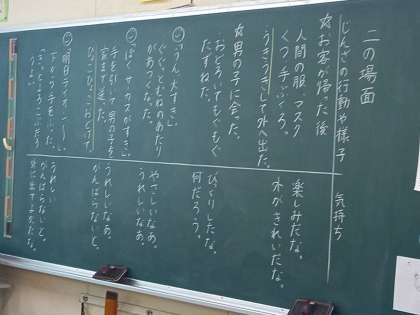 二の場面
じんざの行動や様子
気持ち
☆お客が帰った後
人間の服、マスク
くつ、手ぶくろ。
うきうきして外へ出た。
楽しみだな。
外がきれいだな。
☆男の子に会った。
・おどろいてもぐもぐ
たずねた。
びっくりしたな。
何だろう。
「うん、大すき」
ぐぐっとむねのあたり
があつくなった。
やさしいなあ。
うれしいなあ。
「ぼく、サーカスがすき」
手を引いて、男の子を
家まで送った。
ひょこひょことおどけて
うれしいなあ。
がんばらないと。
明日ライオン
下から手をふった。
うれしい
がんばらないと。
外に出てよかったな。